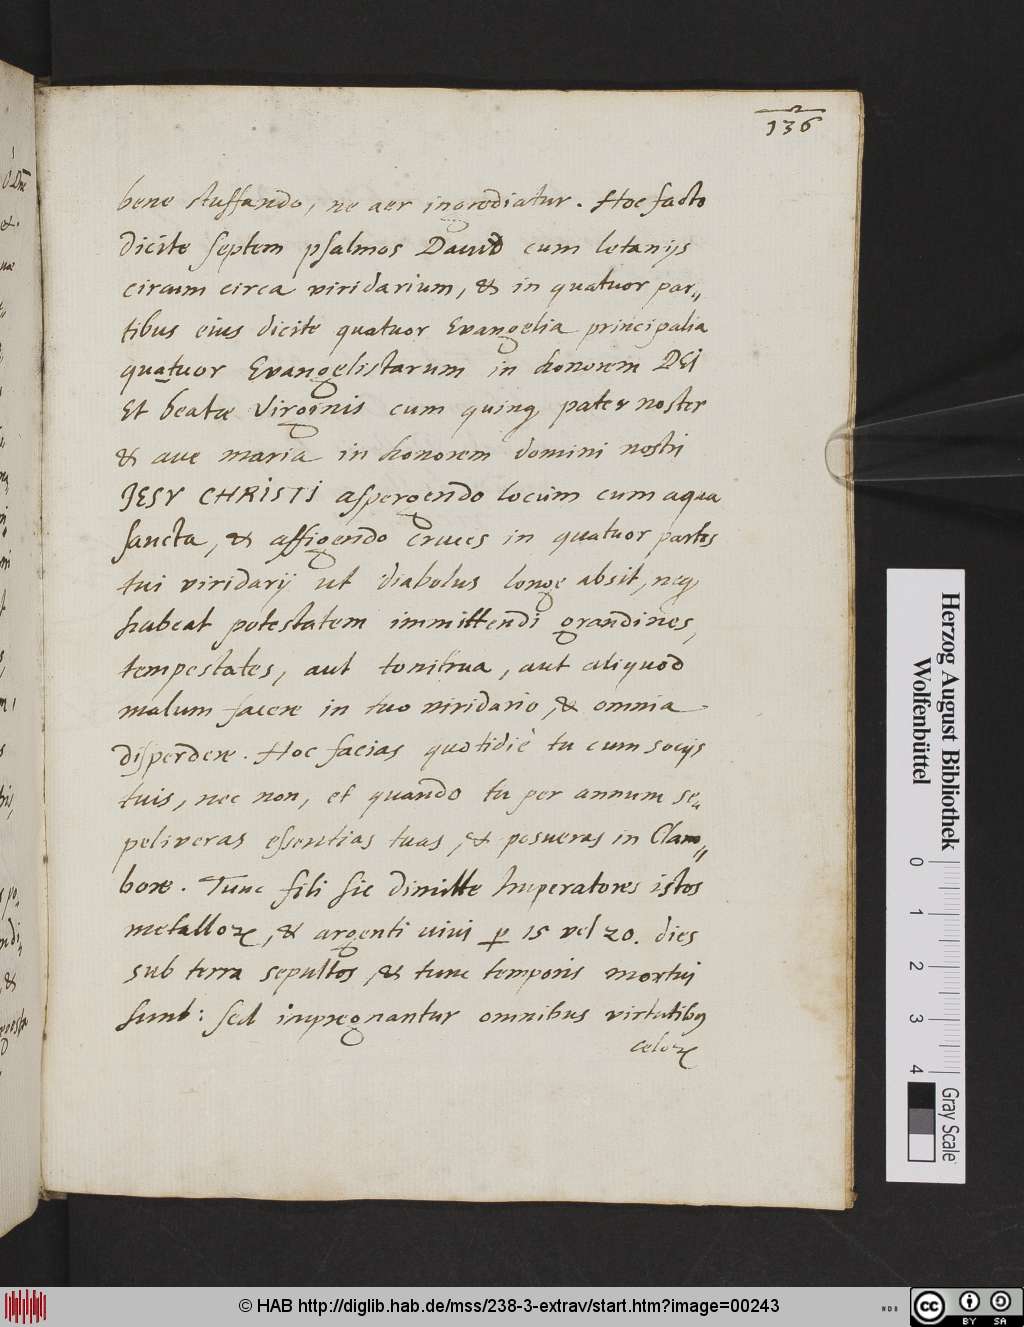 136
bene stuffando, ne aer ingrediatur. Hoc facto
dicite septem psalmos David cum letanijs
circum circa viridarium, & in quatuor par„
tibus eius dicite quatuor Evangelia principalia
quatuor Evangelistarum in honorem DEI
Et beatæ Virginis cum quinq; pater noster
& ave maria in honorem domini nostri
JESV CHRISTI aspergendo locum cum aqua
sancta, & affigendo cruces in quatuor partes
tui viridarij ut diabolus longe absit, neq;
habeat potestatem immittendi grandines,
tempestates, aut tonitrua, aut aliquod
malum facere in tuo viridario, & omnia
disperdere. Hoc facias quotidiè tu cum socijs
tuis, nec non, et quando tu per annum se„
peliveras essentias tuas, & posueras in Clam„
bore. Tunc fili sic dimitte Imperatores istos
metalloꝝ, & argenti vivi ꝑ 15 vel 20. dies
sub terra sepultos, & tunc temporis mortui
sunt: sed inpregnantur omnibus virtutibꝰ
celoꝝ
Herzog August Bibliothek
Wolfenbüttel
0 1 2 3 4
Gray Scale
© HAB http://diglib.hab.de/mss/238-3-extrav/start.htm?image=00243
cc BY SA